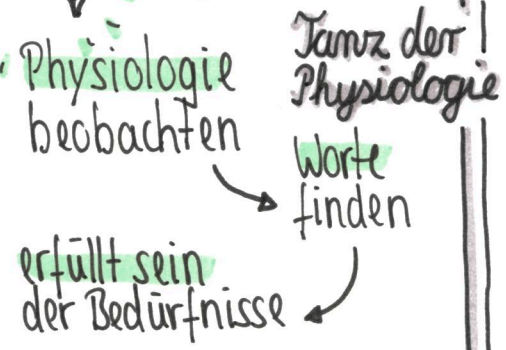 Physiologie
beobachten
Tanz der
Physiologie
Worte
finden
erfüllt sein
der Bedürfnisse